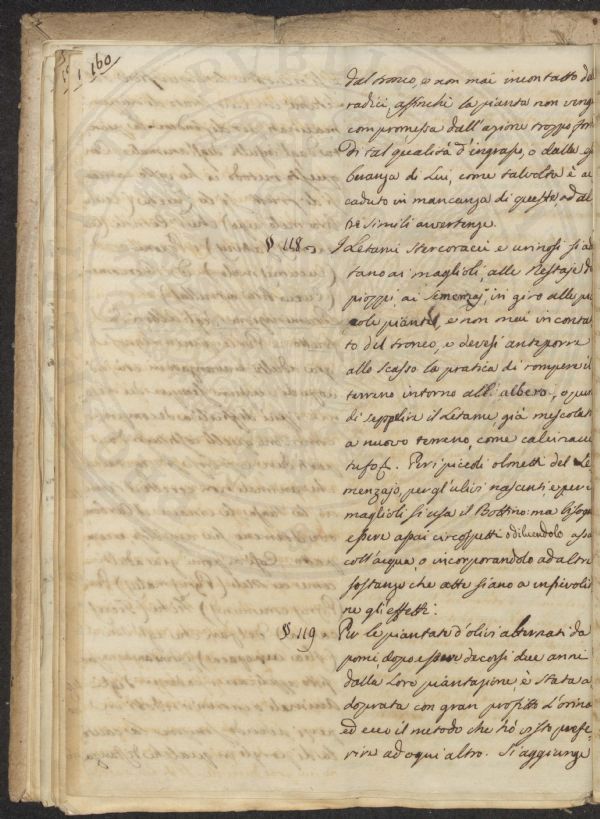 160
dal tronco, e non mai in contatto de
radici, affinchè la pianta non veng
compromessa dall'azione troppo for
di tal qualità d'ingrasso, o dalla
beranza di Lui, come talvolta è ac
caduto in mancanza di queste, ed al
tre simili avvertenze.
§ 118 I Letami stercoracei e urinosi si ad
tano ai maglioli, alle Nestaje di
pioppi ai semenzaj, in giro alle pic
cole piante, e non mai in conta
to del tronco, e devesi anteporre
allo scasso la pratica di rompere il
terreno intorno all'albero, o pure
di seppelire il Letame, già mescolat
a nuovo terreno, come calcinacci
tufo &. Per i piccoli olmetti del Se
menzajo, per gl'ulivi nascenti, e per i
maglioli si usa il Bottino: ma bisogn
essere assai circospetti o diluendolo assa
coll'acqua, o incorporandolo ad altre
sostanze che atte siano a infievolir
ne gl'effetti.
§ 119 Per le piantate d'olivi alternati da
pomi dopo essere decorsi due anni
dalla Loro piantagione, è stata a
doprata con gran profitto L'orina
ed ecco il metodo che hò visto prefe-
rire ad ogni altro. Si aggiunge